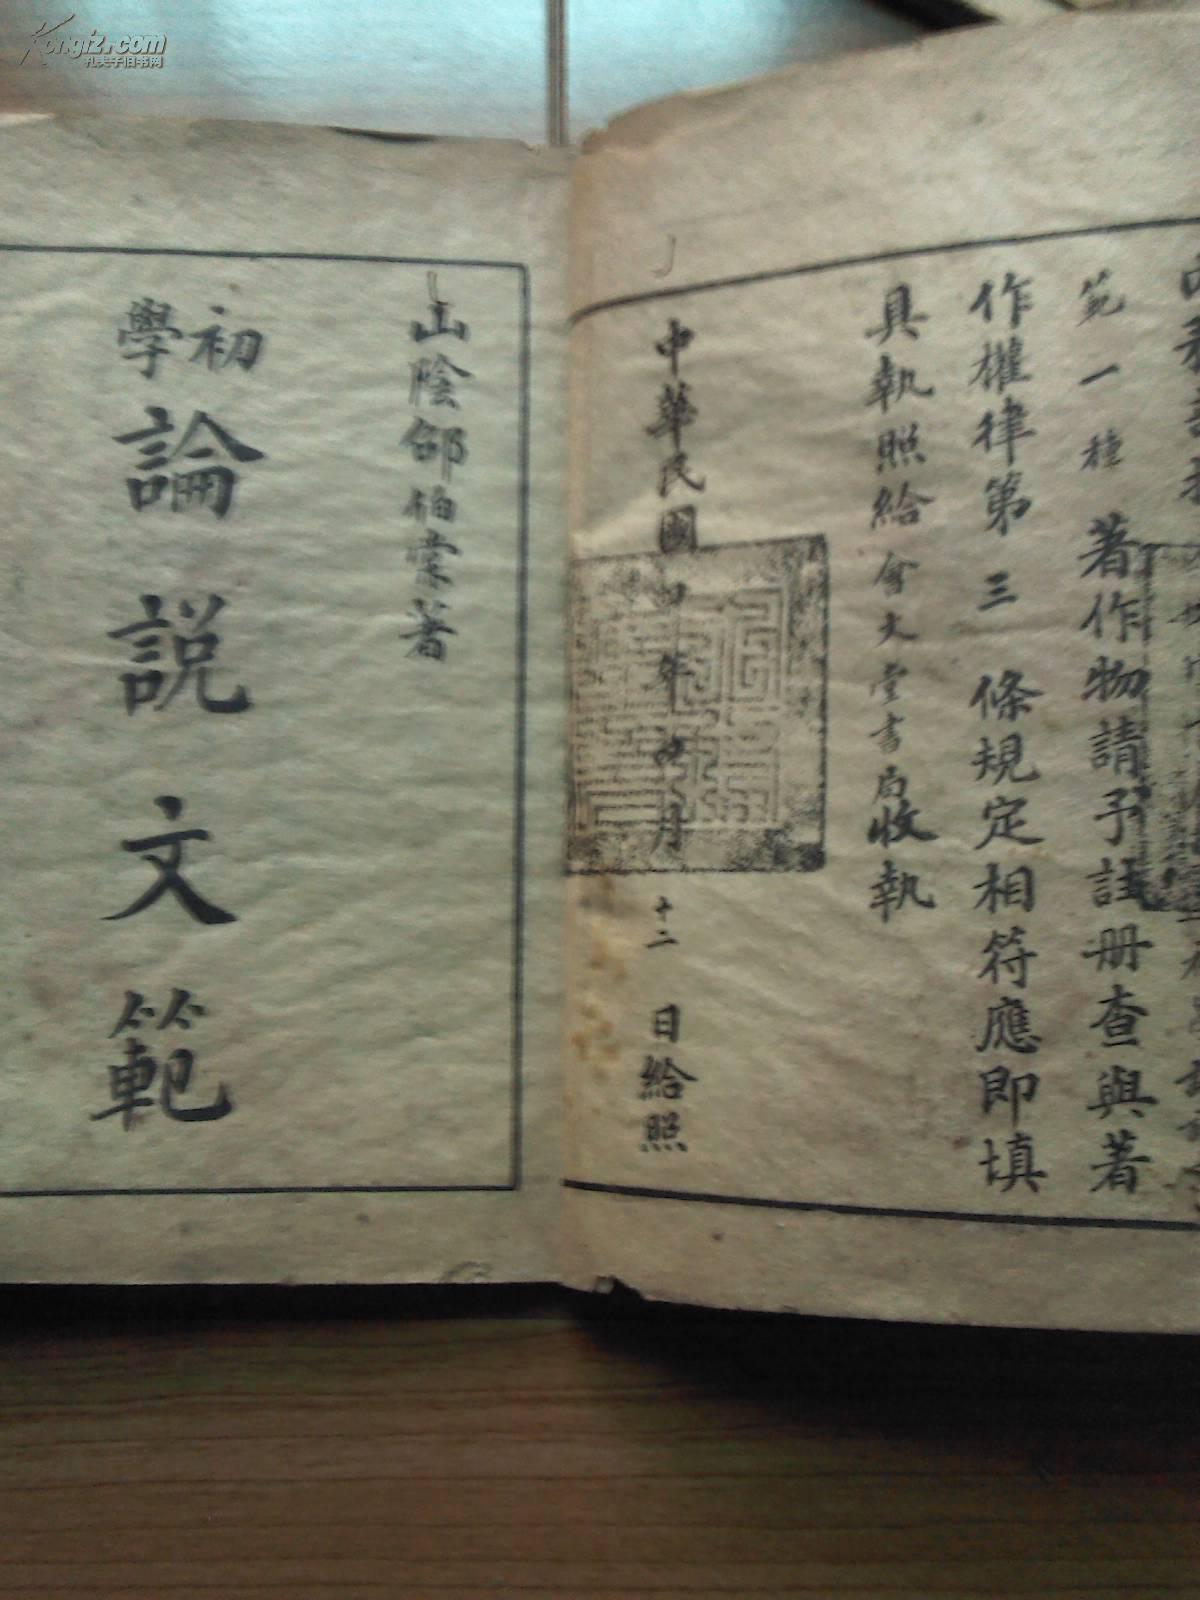 範一種 著作物請予註册查與著
作權律第三條規定相符應即填
具執照給會文堂書局收執
中華民國四年四月十二日給照
山陰邵伯棠著
初學論説文範
Kongfz.com
孔夫子旧书网